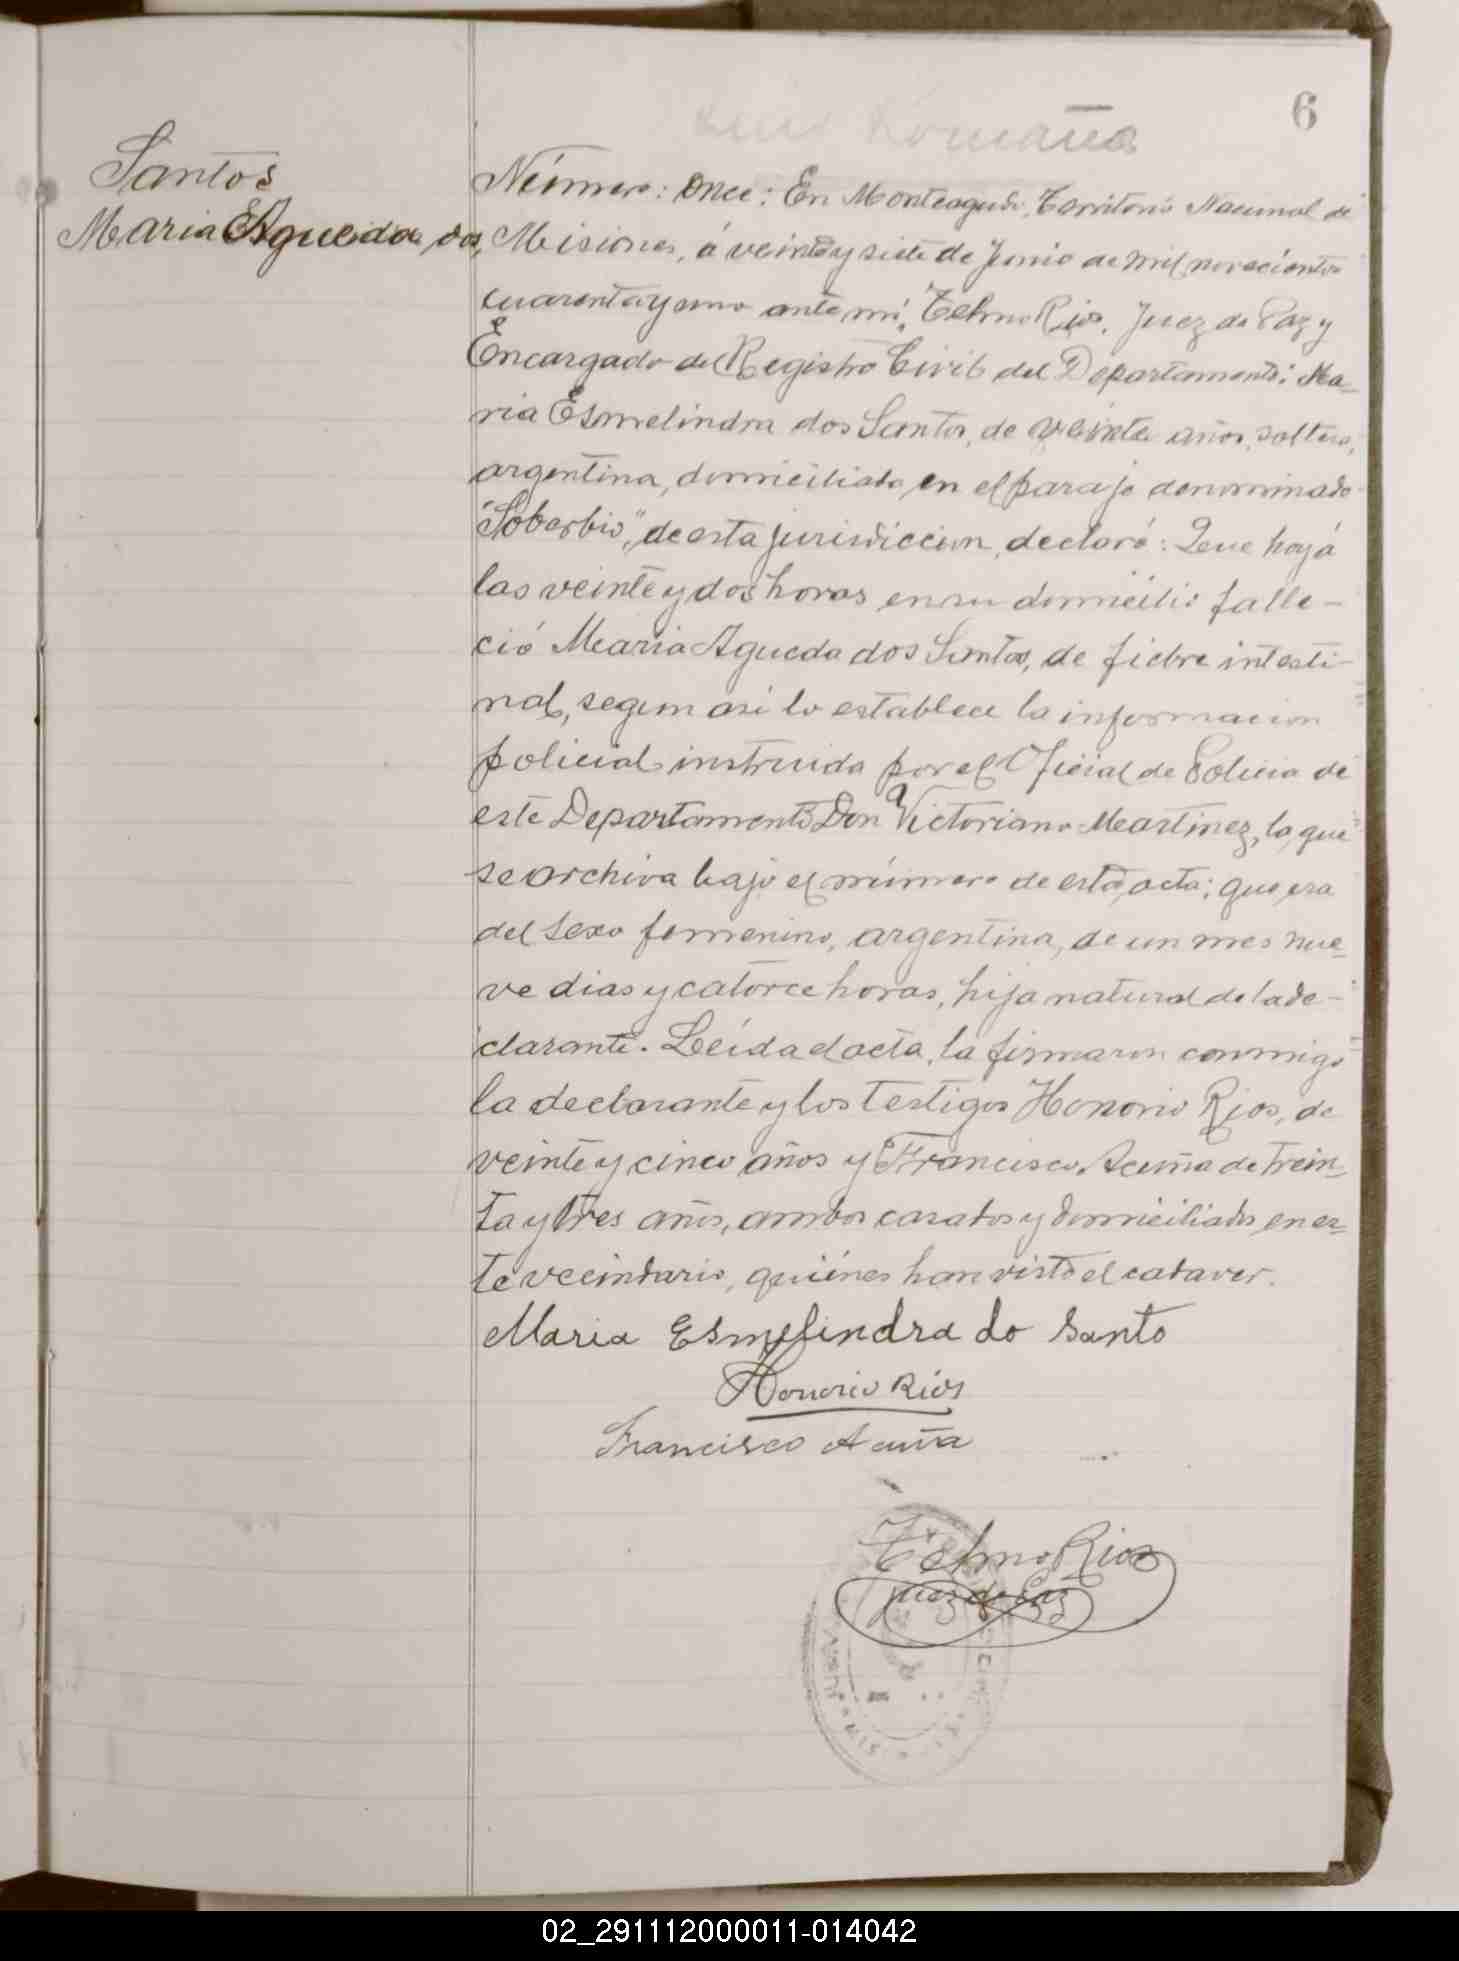 6
Santos
Maria Agueda dos
Número: Once: En Monteagudo, Territorio Nacional de
Misiones, á veinte y siete de Junio de mil novecientos
cuarenta y uno ante mí, Telmo Rios, Juez de Paz y
Encargado del Registro Civil del Departamento: Ma-
ria Esmelindra dos Santos, de veinte años, soltera,
argentina, domiciliada en el paraje denominado
"Soberbio", de esta jurisdiccion, declaró: Que hoy á
las veinte y dos horas en su domicilio falle-
ció Maria Agueda dos Santos, de fiebre intesti-
nal, segun asi lo establece la informacion
policial instruida por el Oficial de Policia de
este Departamento Don Victoriano Martinez, la que
se archiva bajo el número de esta acta; que era
del sexo femenino, argentina, de un mes nue-
ve dias y catorce horas, hija natural de la de-
clarante. Leída el acta, la firmaron conmigo
la declarante y los testigos Honorio Rios, de
veinte y cinco años y Francisco Acuña de trein-
ta y tres años, ambos casados y domiciliados en es-
te vecindario, quiénes han visto el cadaver.
Maria Esmelindra do Santo
Honorio Rios
Francisco Acuña
Telmo Rios
Juez de Paz
02_291112000011-014042